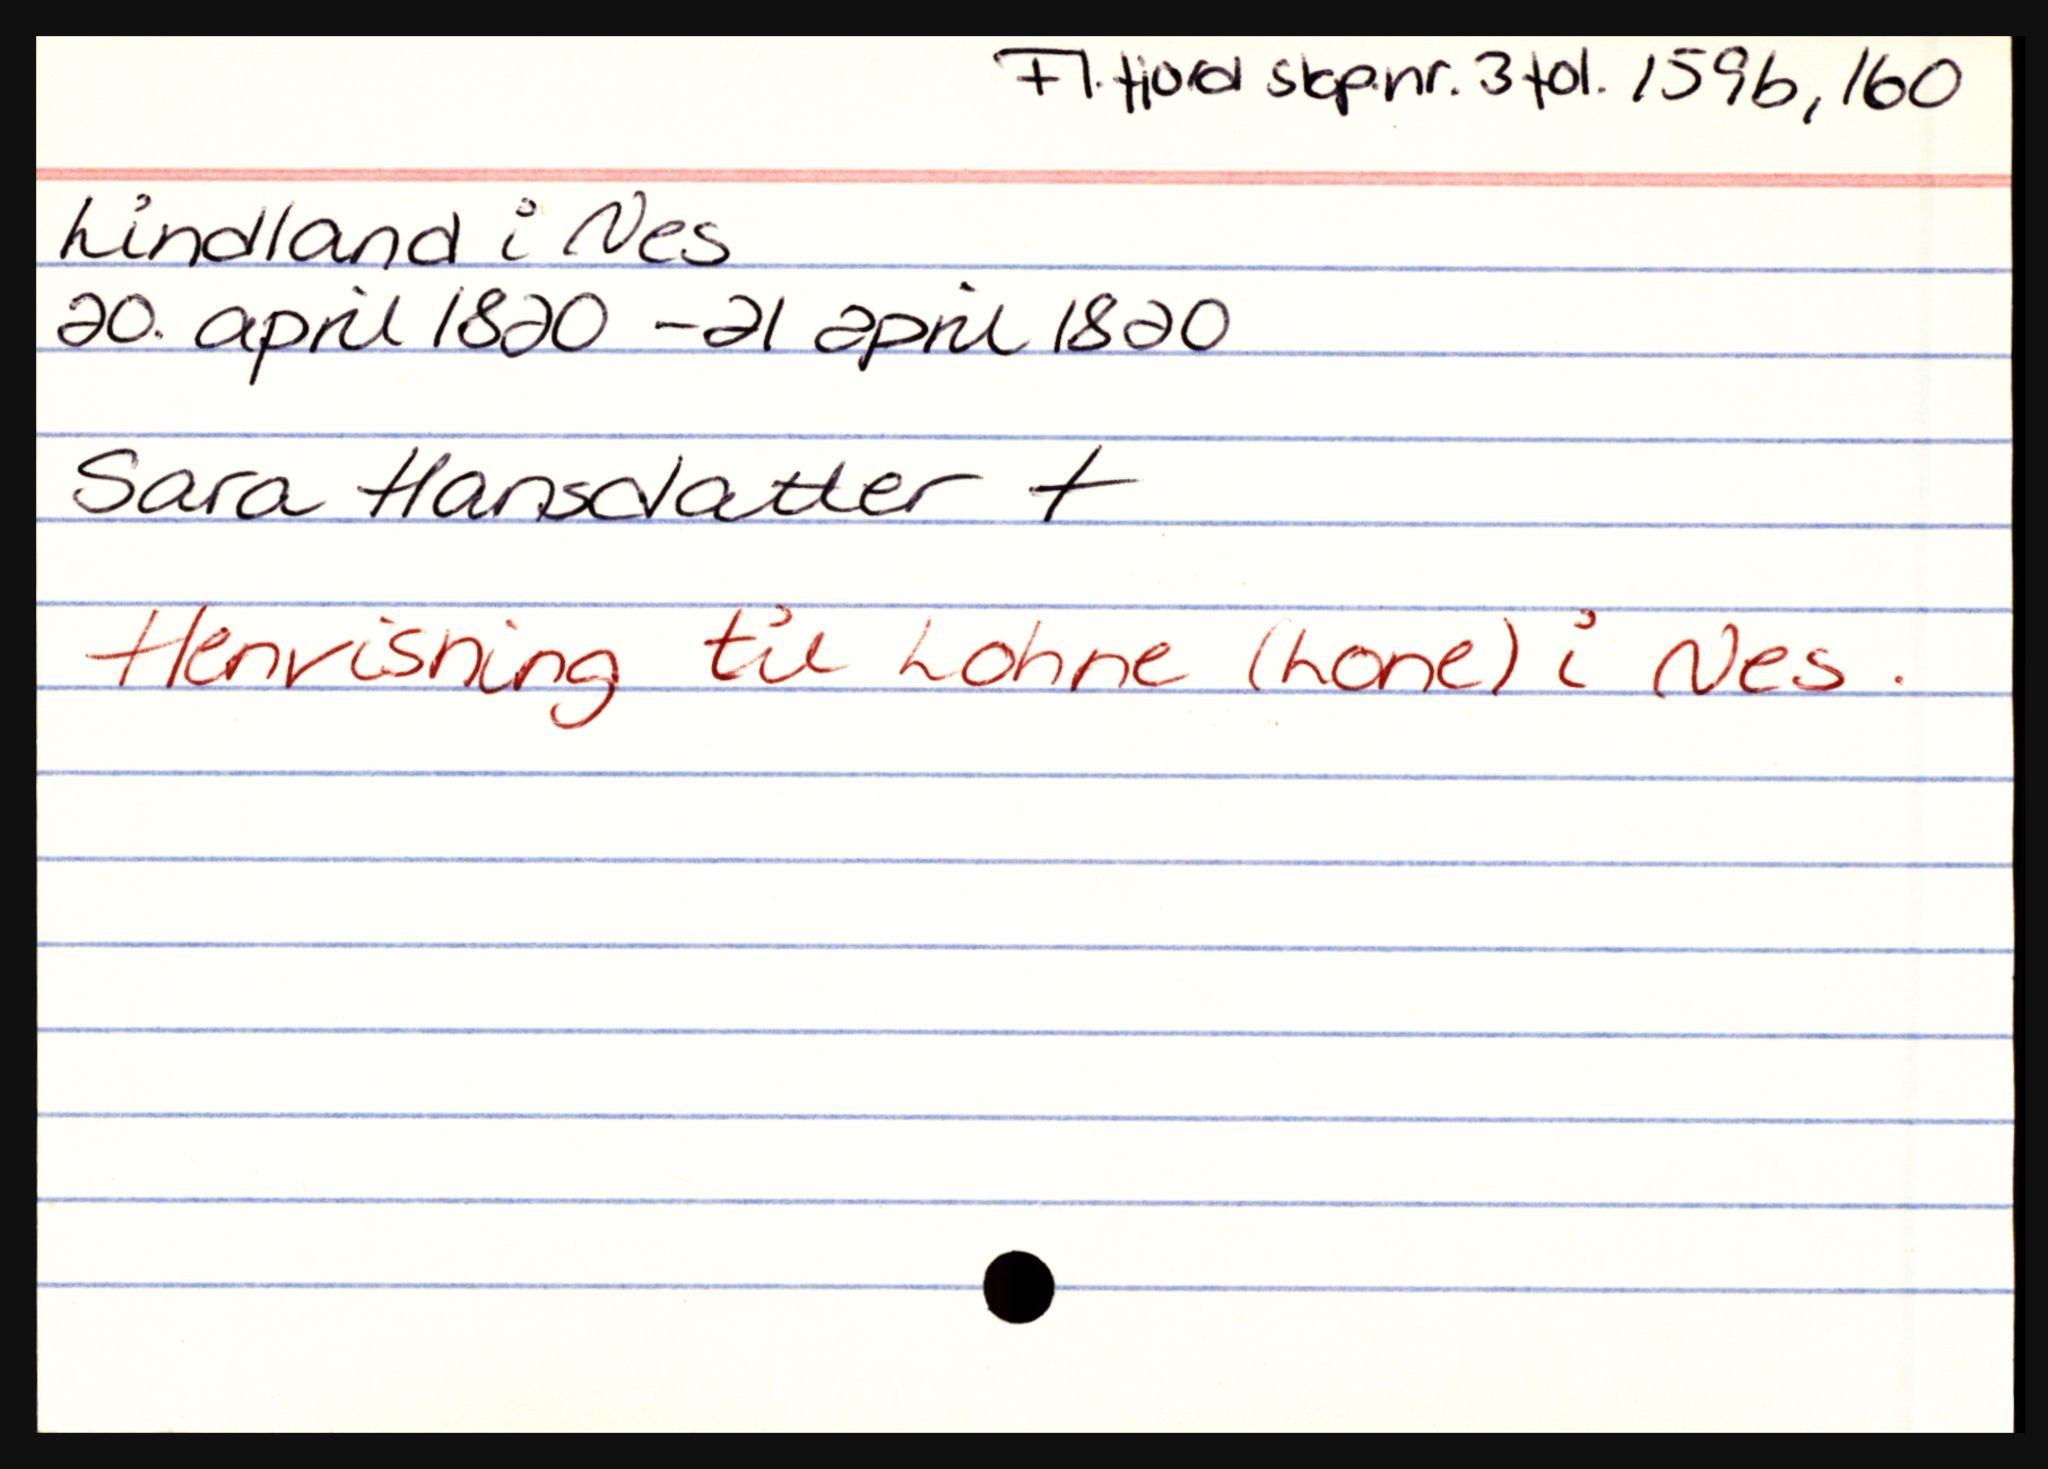 Fl.fjord skp.nr. 3 fol. 159b, 160
Lindland i Nes
20. april 1820 - 21 april 1820
Sara Hansdatter +
Henvisning til Lohne (Lone) i Nes.